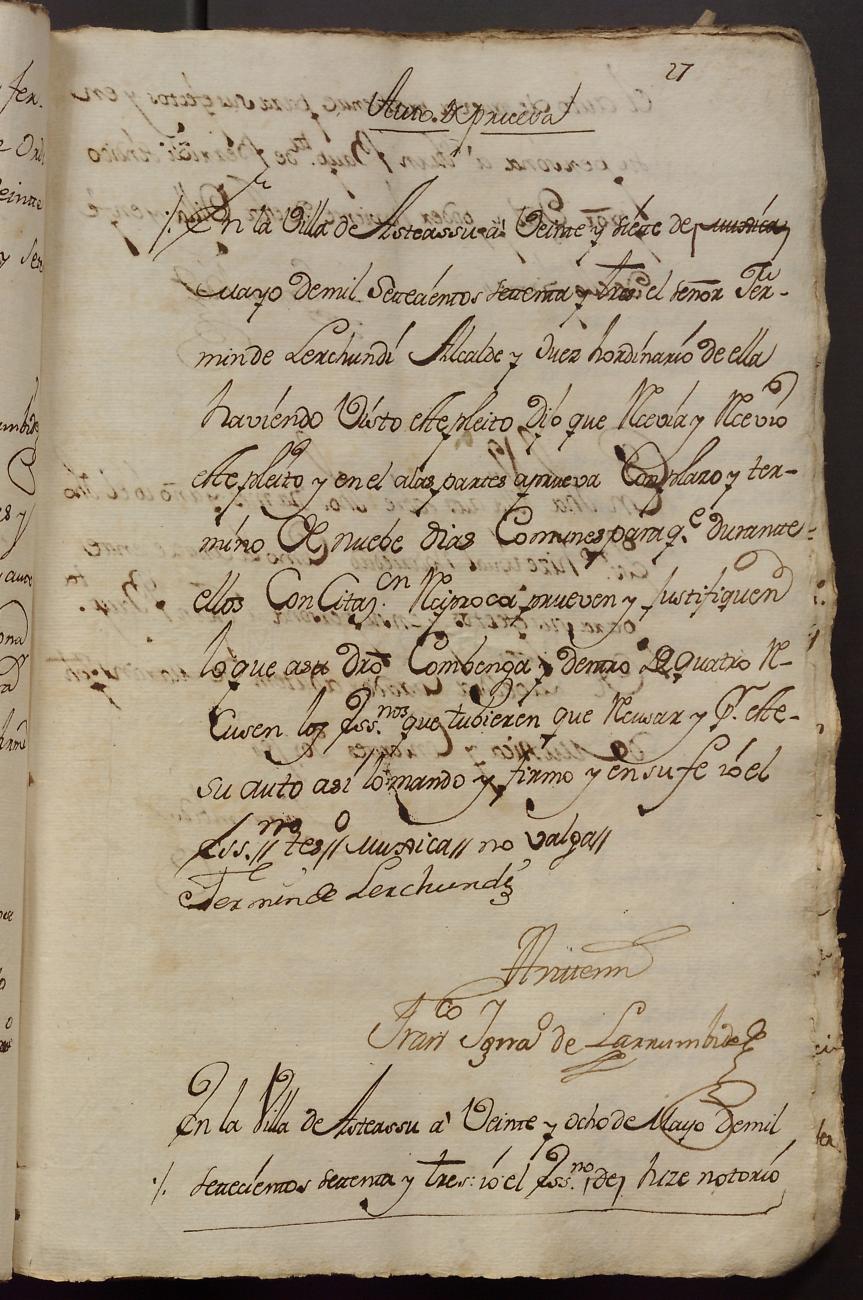 27
Auto. de prueba
En la Villa de Asteassu a Veinte y siete de Musica
Mayo de mil Setecientos setenta y tres: el señor Fer-
min de Lerchundi Alcalde y Juez hordinario de ella
haviendo Visto este pleito Dijo que Recevia y Recevio
este pleito y en el a las partes a prueva Con plazo y ter-
mino De nuebe dias Comunes para q.e durante
ellos Con Citaz.on Reciproca prueven y Justifiquen
lo que a su dro Combenga y dentro De quatro Re-
Cusen los Ess.nos que tubieren que Recusar y P.r este
su auto asi lo mando y firmo y en su fe io el
Ess.no // tes // Musica // no Valga //
Fermin de Lerchundi
Antemi
Fran.co Ign.o de Larrumbide
En la Villa de Asteassu a Veinte y ocho de Mayo de mil
setecientos setenta y tres: io el Ess.no de hize notorio